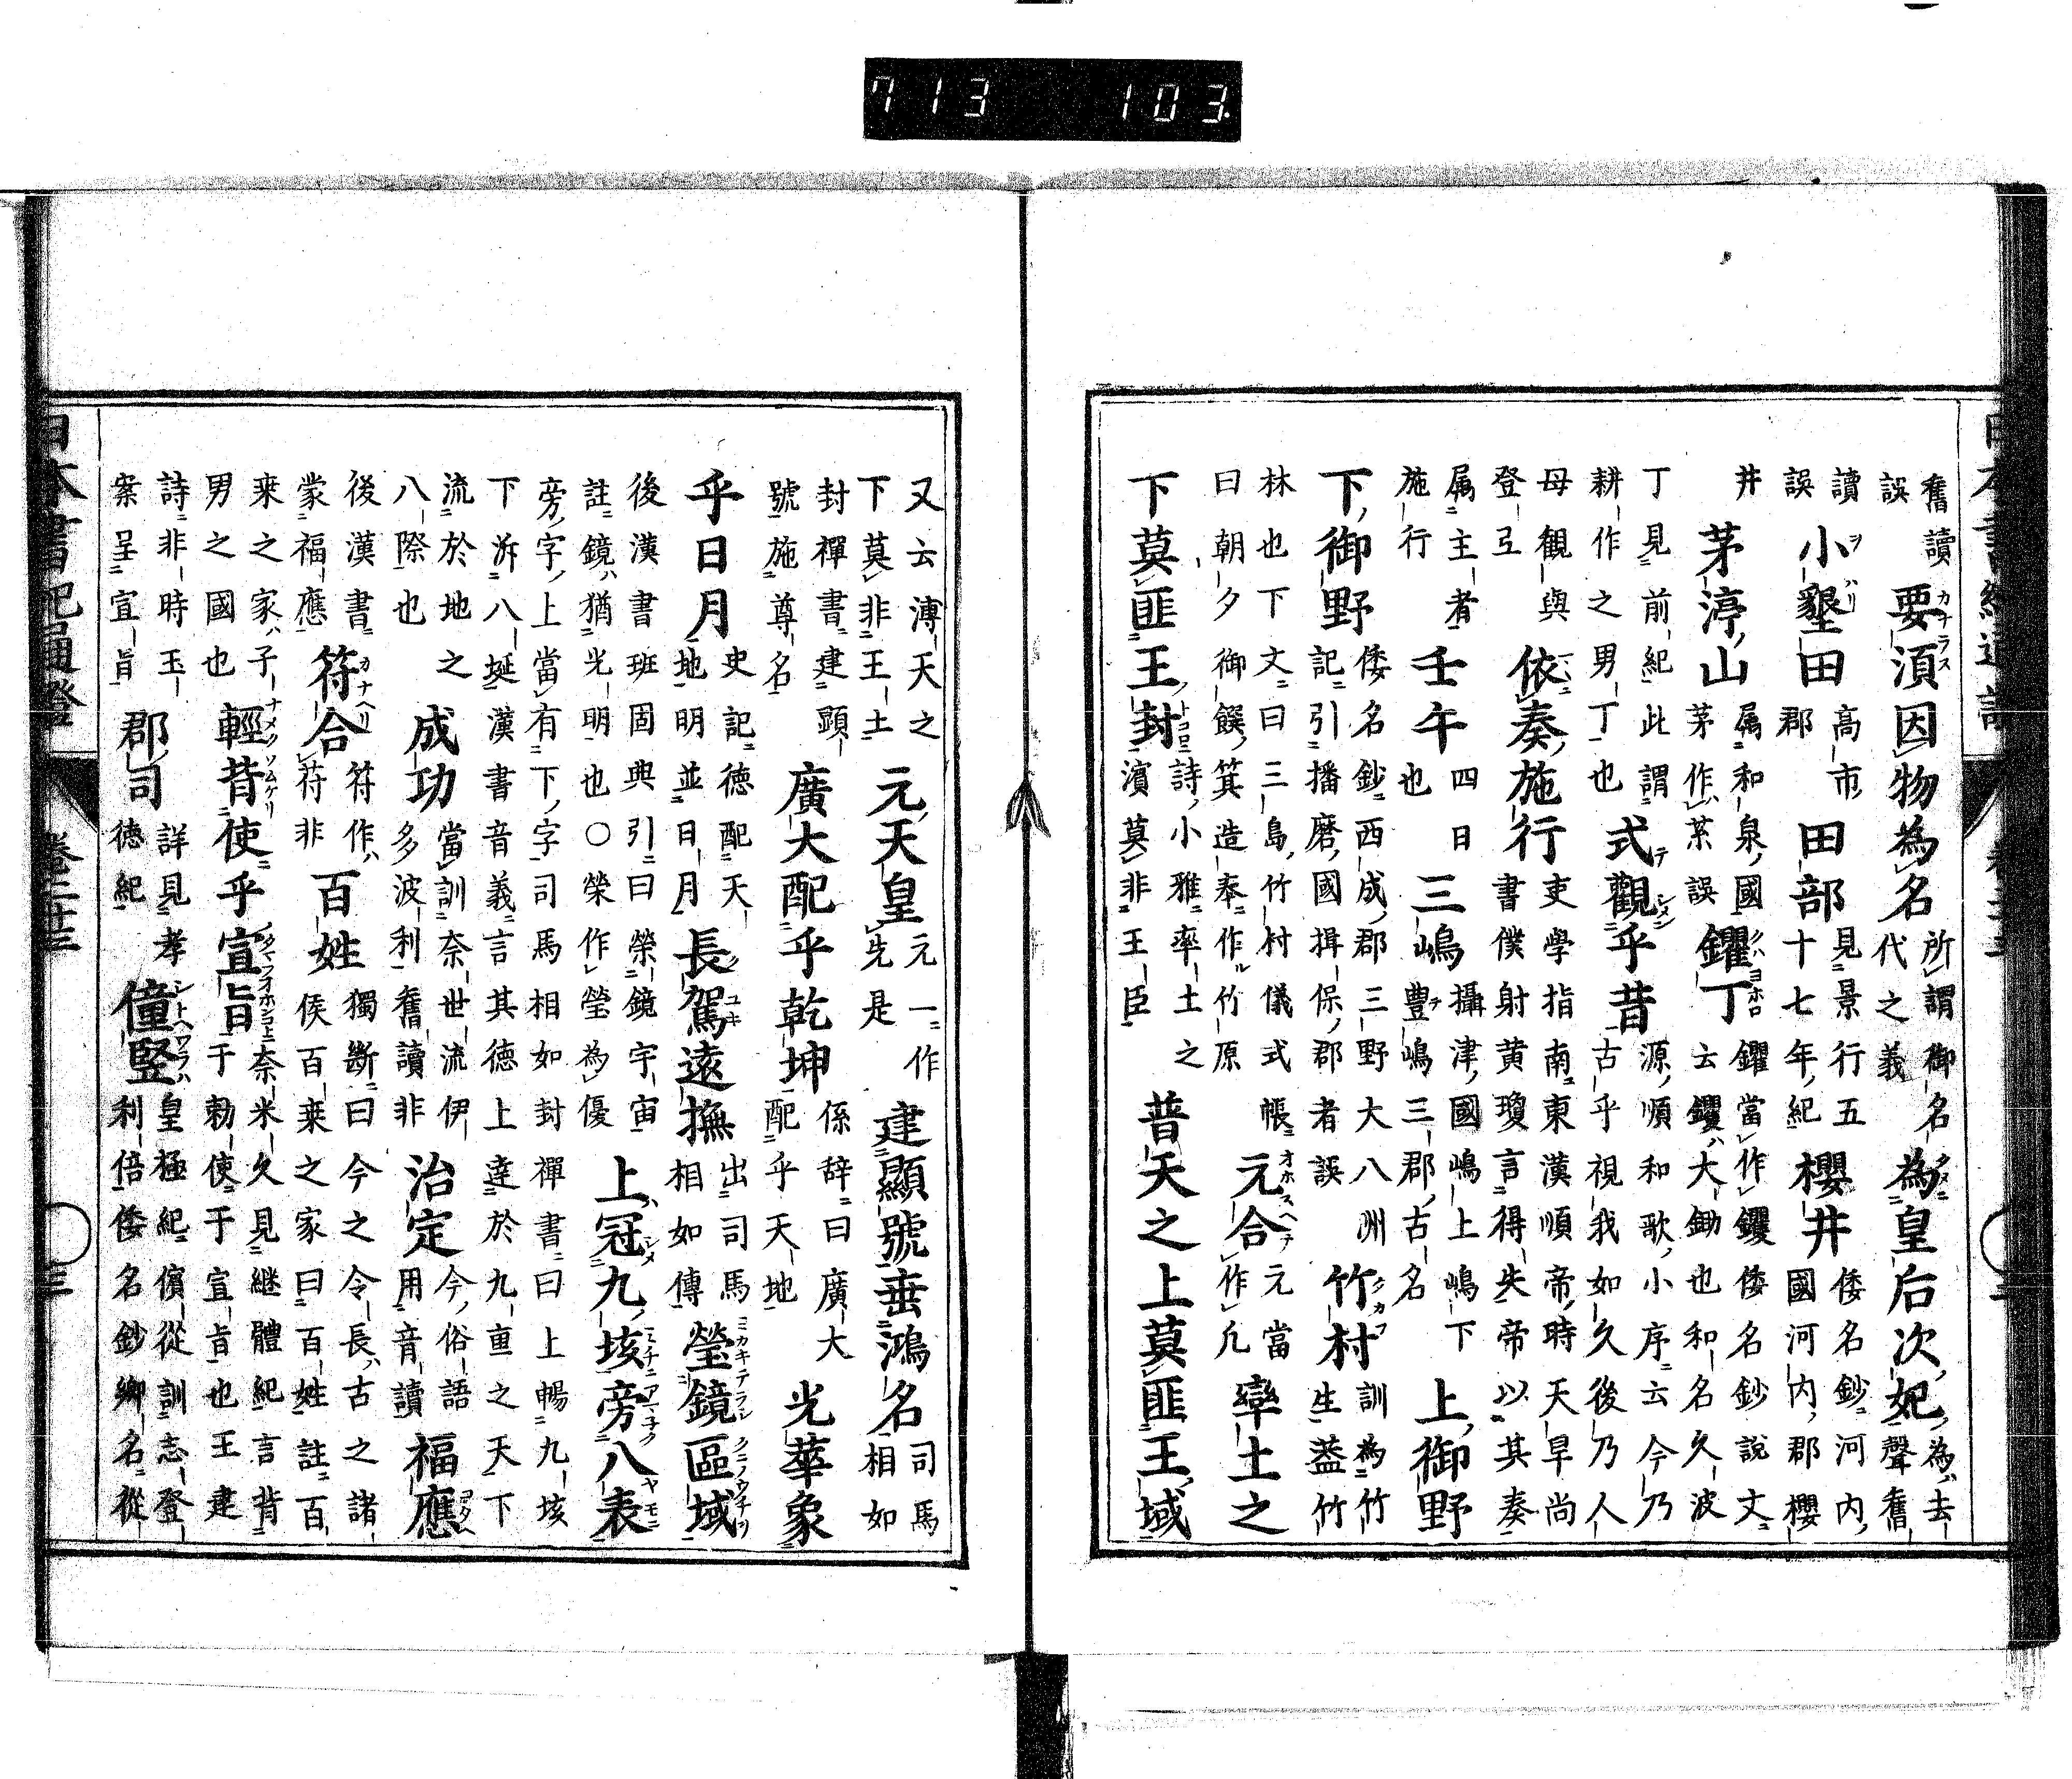 713 103
舊讀誤要須因物為名所謂御名代之義為皇后次妃為去聲舊
讀誤小墾田高市郡田部見景行五十七年紀櫻井倭名鈔河内國河内郡櫻
井茅渟山属和泉國茅作誤钁丁钁當作钁倭名鈔説文云钁大鋤也和名久波
丁見前紀此謂耕作之男丁也式觀乎昔源順和歌小序云今乃古乎視我如久後乃人
母観與登弖依奏施行吏學指南東漢順帝時天旱尚書僕射黄瓊言得失帝以其奏
属主者施行壬午四日也三嶋攝津國嶋上嶋下豊嶋三郡古名上御野
下御野倭名鈔西成郡三野大八洲記引播磨國揖保郡者誤竹村訓為竹生益竹
林也下文曰三島竹村儀式帳曰朝夕御饌箕造奉作竹原元合元當作凢率土之
下莫匪王封詩小雅率土之濱莫非王臣普天之上莫匪王域
又云溥天之下莫非王土元天皇元一作先是建顯號垂鴻名司馬相如
封禪書建顕號施尊名廣大配乎乾坤係辞曰廣大配乎天地光華象
乎日月史記徳配天地明並日月長駕遠撫出司馬相如傳瑩鏡區域
後漢書班固典引曰榮鏡宇宙註鏡猶光明也○榮作瑩為優上冠九垓旁八表
旁字上當有下字司馬相如封禪書曰上暢九垓下泝八埏漢書音義言其德上達於九重之天下
流於地之八際也成功當訓奈世流伊多波利舊讀非治定今俗語用音讀福應
後漢書蒙福應符合符作苻非百姓獨斷曰今之令長古之諸侯百乗之家曰百姓註百
乗之家子男之國也輕背使乎宣旨奈米久見継體紀言背于勅使于宣旨也王建
詩非時玉案呈宣旨郡司詳見孝徳紀僮竪皇極紀儐從訓志登利倍倭名鈔郷名從
日本書紀通證